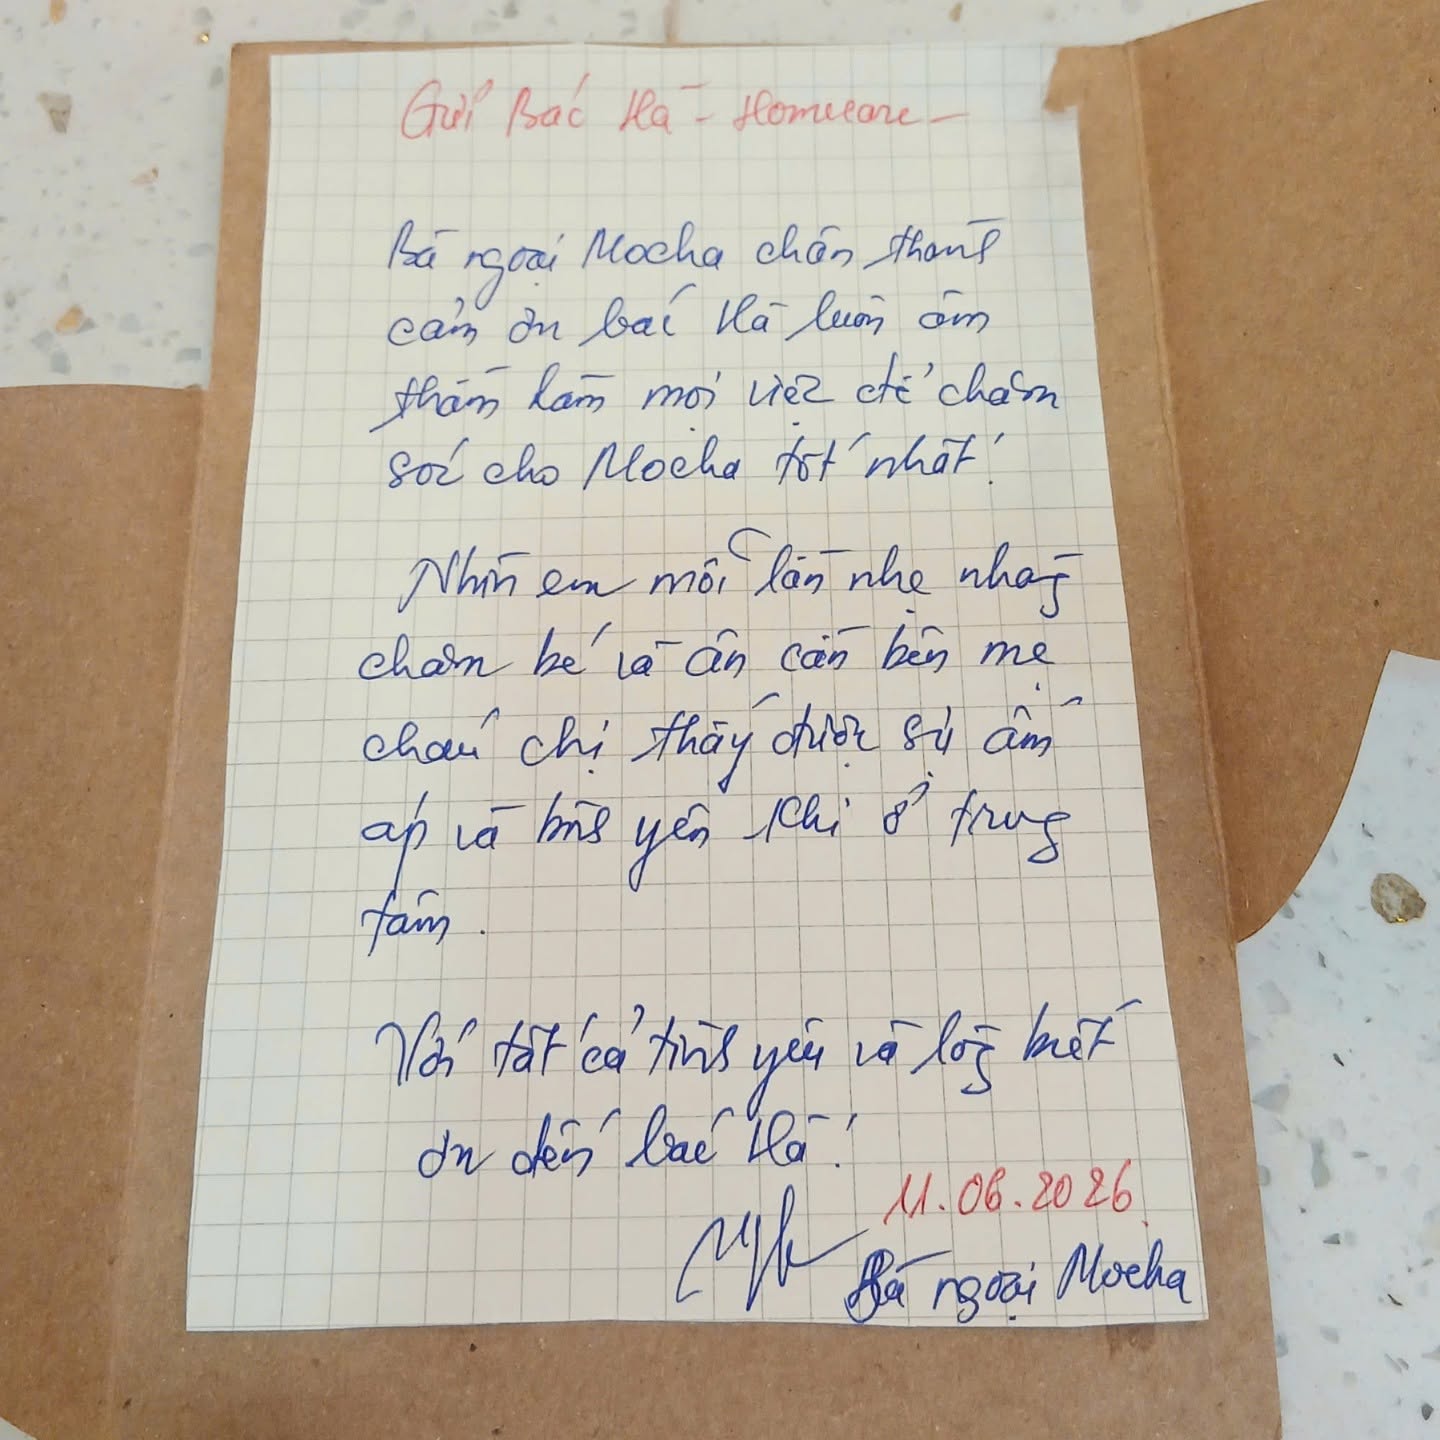 Gửi Bác Hà - Homecare -
Bà ngoại Mocha chân thành
cảm ơn bác Hà luôn âm
thầm làm mọi việc để chăm
sóc cho Mocha tốt nhất!
Nhìn em mỗi lần nhẹ nhàng
chăm bé và ân cần bên mẹ
cháu chị thấy được sự ấm
áp và bình yên khi ở trung
tâm.
Với tất cả tình yêu và lòng biết
ơn đến bác Hà!
11.06.2026
Bà ngoại Mocha